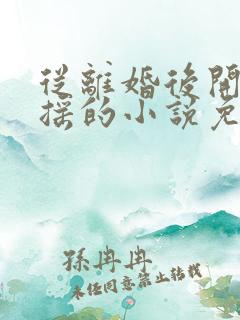 從離婚後開
採的小說免
孫冉冉
未經同意禁止轉載